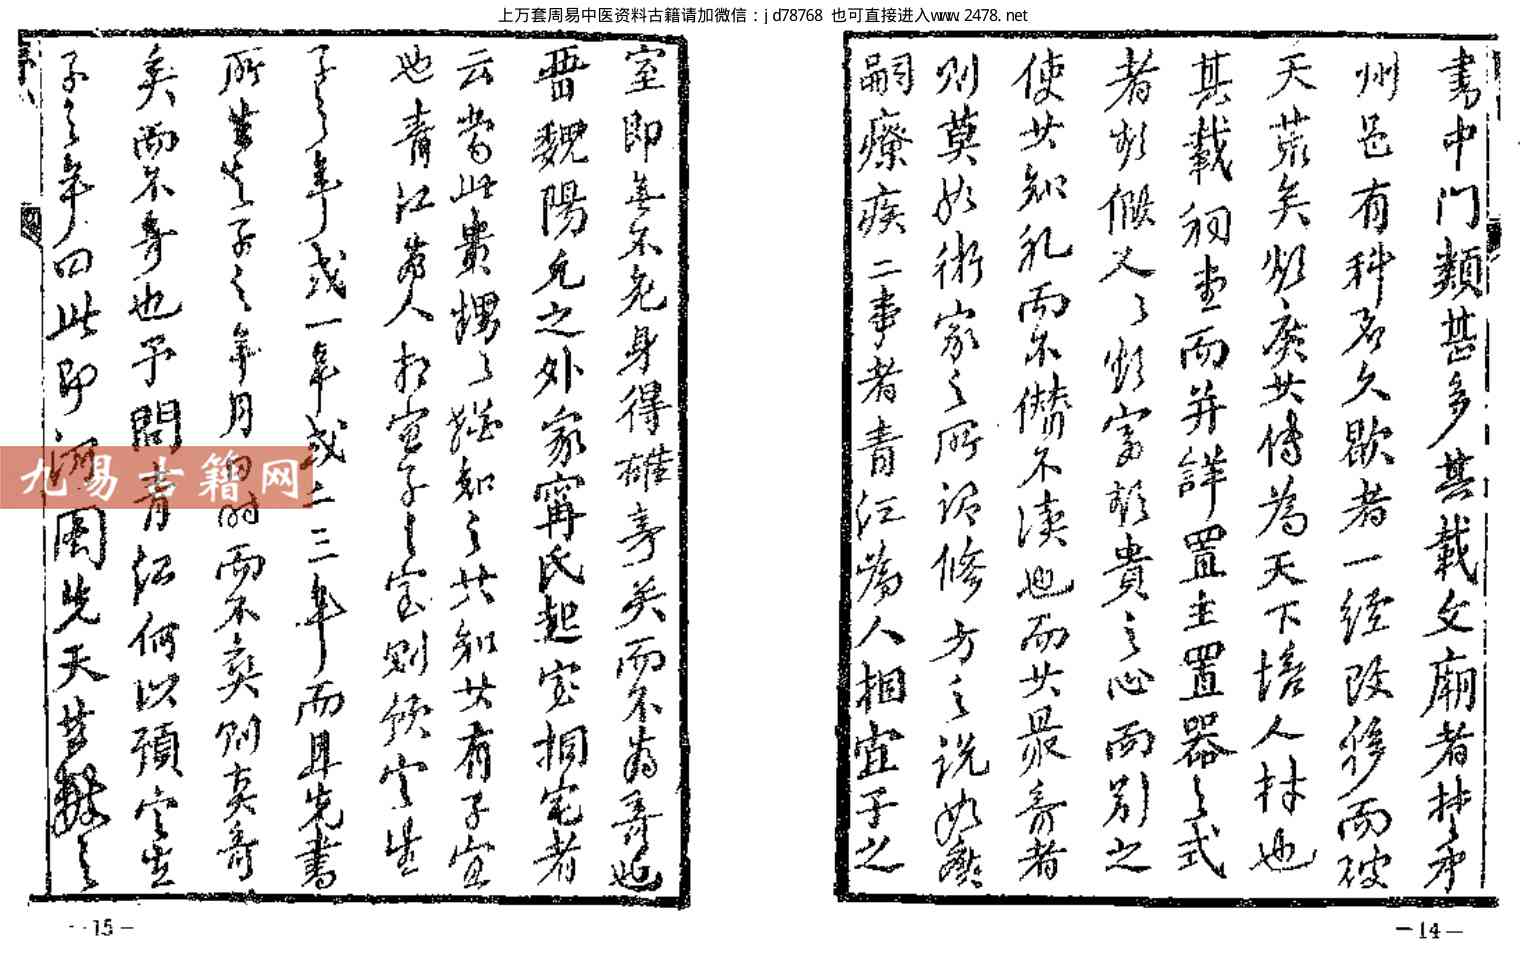 上万套周易中医资料古籍请加微信：jd78768 也可直接进入www.2478.net
書中门類甚多其載文廟者
州邑有科名久歇者一经改移而破
天荒矣 廣其傳為天下培人材也
其載初 而并詳置主置器之式
者 假人之 富 貴之心而别之
使其知礼而不僣不凟也而其最奇者
则莫如術家之所谓修方之说如
嗣療疾二事者青江為人相宜子之
室即 不 身得雄 矣而不為奇也
晋魏陽元之外家甯氏起宅相宅者
云當此貴甥之 知之其知其有子宜
也青江為人相宜子之室则 定生
子之年或一年或二三年而且先書
所生之子之年月日时而不爽则真奇
矣而不奇也予問青江何以預定生
子之年四此即河圖先天 數之
九易古籍网
15
14